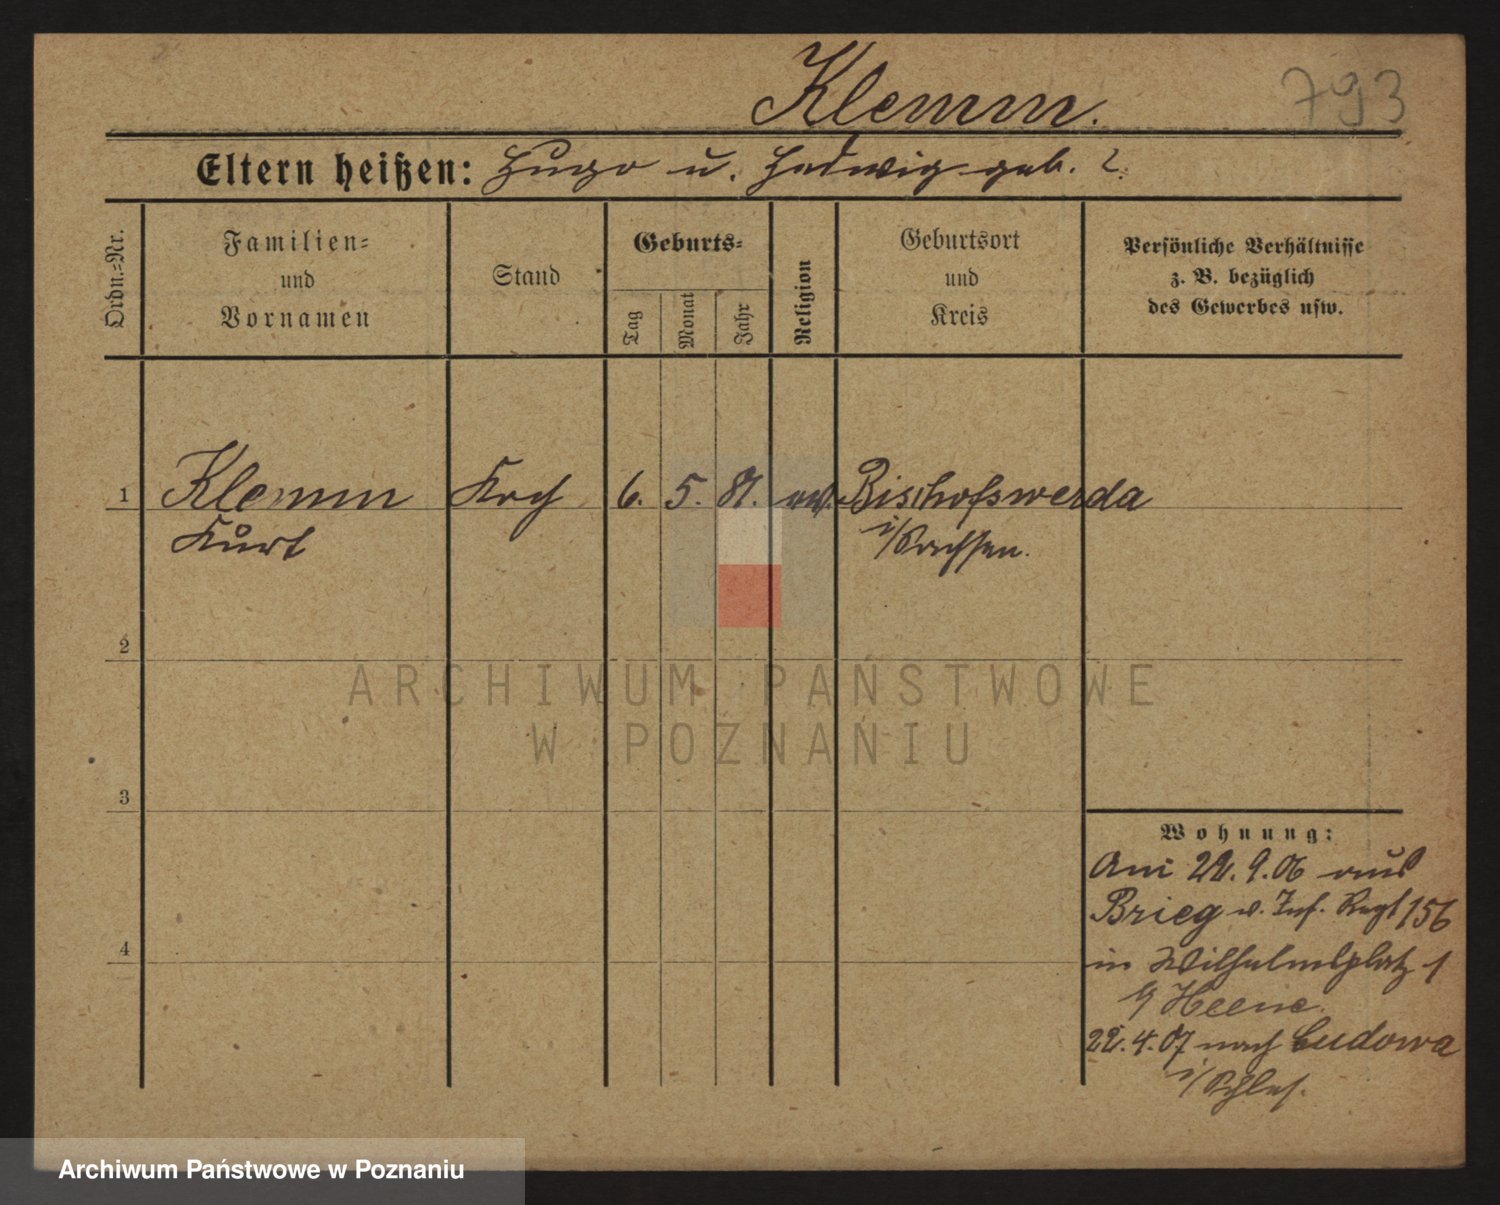 Klemm.
793
Eltern heißen: Hugo u. Hedwig geb. ?
Ordn.=Nr.
Familien=
und
Vornamen
Stand
Geburts=
Tag
Monat
Jahr
Religion
Geburtsort
und
Kreis
Persönliche Verhältnisse
z. B. bezüglich
des Gewerbes usw.
1 Klemm Koch 6. 5. 87. ev. Bischofswerda
Kurt i/Sachsen.
2
3
4
Wohnung:
Am 22. 9. 06 aus
Brieg v. Inf. Regt 156
in Wilhelmsplatz 1
Heene.
22. 4. 07 nach Cudowa
i/Schles.
ARCHIWUM PAŃSTWOWE
W POZNANIU
Archiwum Państwowe w Poznaniu